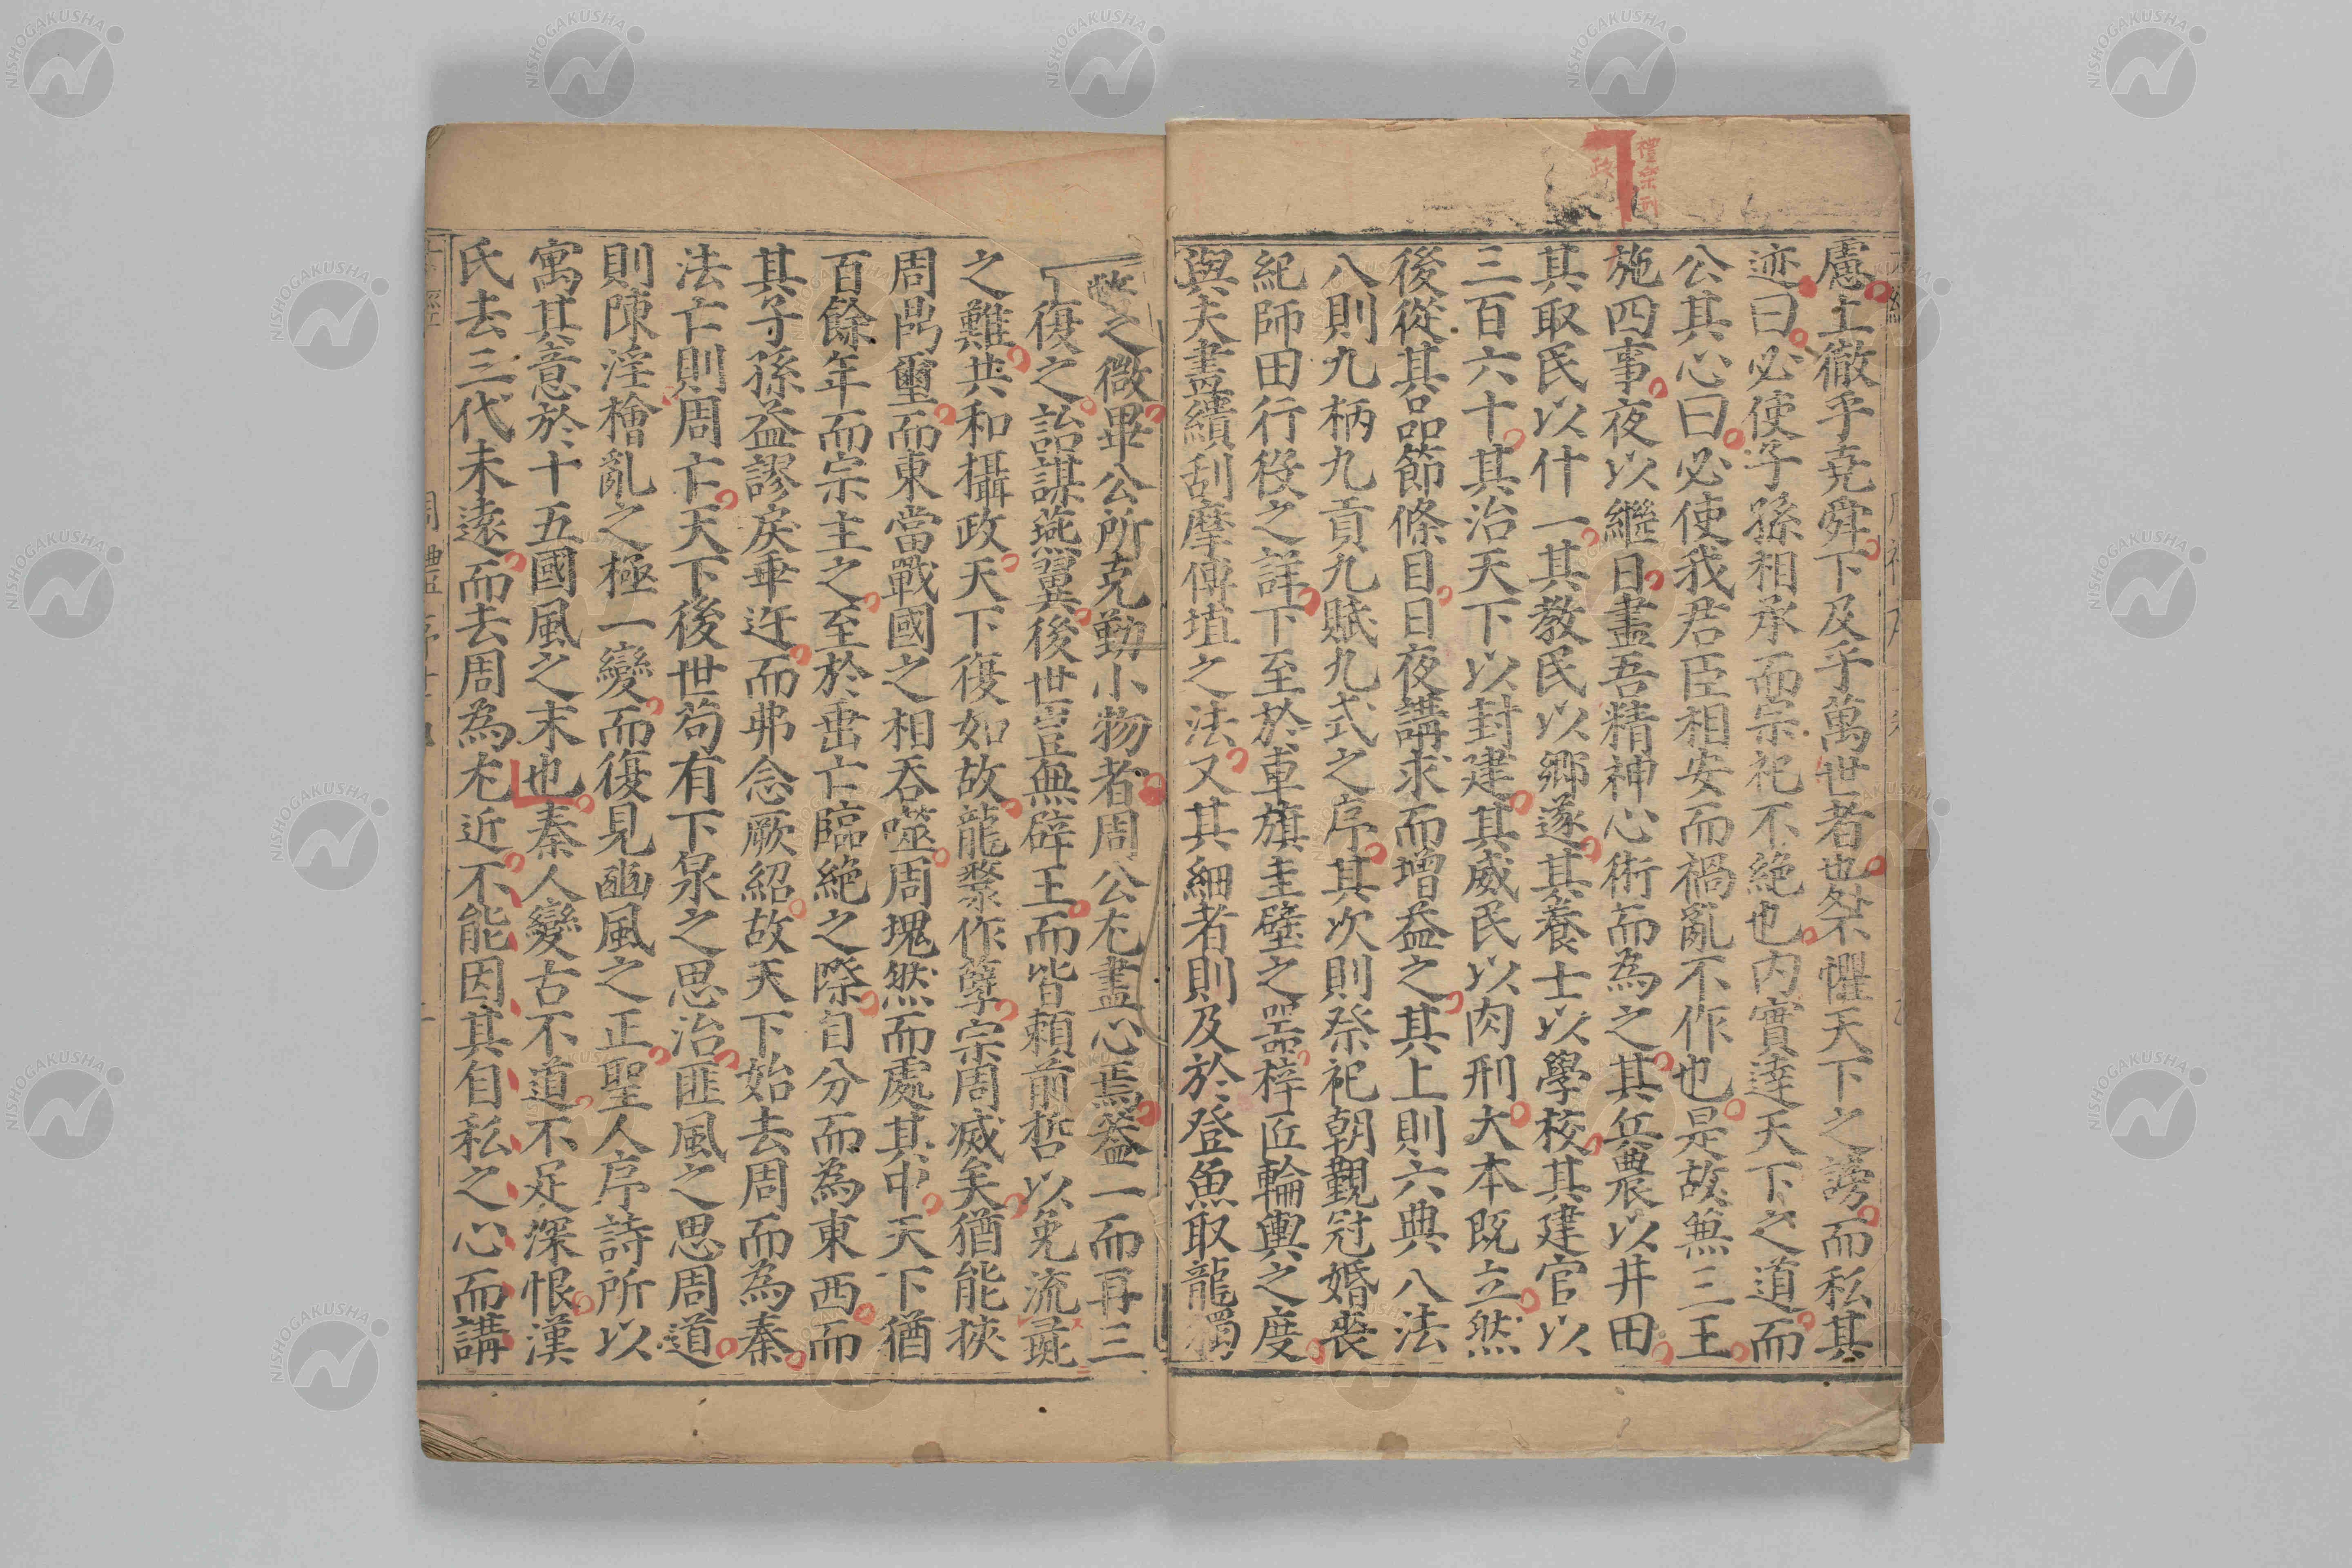 慮上徹乎堯舜下及乎萬世者也然不懼天下之謗而私其
迹曰必使子孫相承而宗祀不絶也内實達天下之道而
公其心曰必使我君臣相安而禍亂不作也是故無三王
施四事夜以繼日盡吾精神心術而為之其兵農以井田
其取民以什一其教民以鄉遂其養士以學校其建官以
三百六十其治天下以封建其威民以肉刑大本既立然
後從其品節條目日夜講求而增益之其上則六典八法
八則九柄九貢九賦九式之序其次則祭祀朝覲冠婚喪
紀師田行役之詳下至於車旗圭璧之器梓匠輪輿之度
與夫畫繢刮摩傳埴之法又其細者則及於登魚取龍
之微畢公所克勤小物者周公尤盡心焉蓋一而再三
復之詒謀燕翼後世豈無辟王而皆賴前哲以免流彘
之難共和攝政天下復如故龍漦作孽宗周滅矣猶能挾
周鼎璽而東當戰國之相吞噬周塊然而處其中天下猶
百餘年而宗主之至於垂亡臨絶之際自分而為東西而
其子孫益謬戾乖迕而弗念厥紹故天下始去周而為秦
法亡則周亡天下後世苟有下泉之思治匪風之思周道
則陳淫檜亂之極一變而復見豳風之正聖人序詩所以
寓其意於十五國風之末也秦人變古不道不足深恨漢
氏去三代未遠而去周為尤近不能因其自私之心而講
禮樂刑
NISHOGAKUSHA